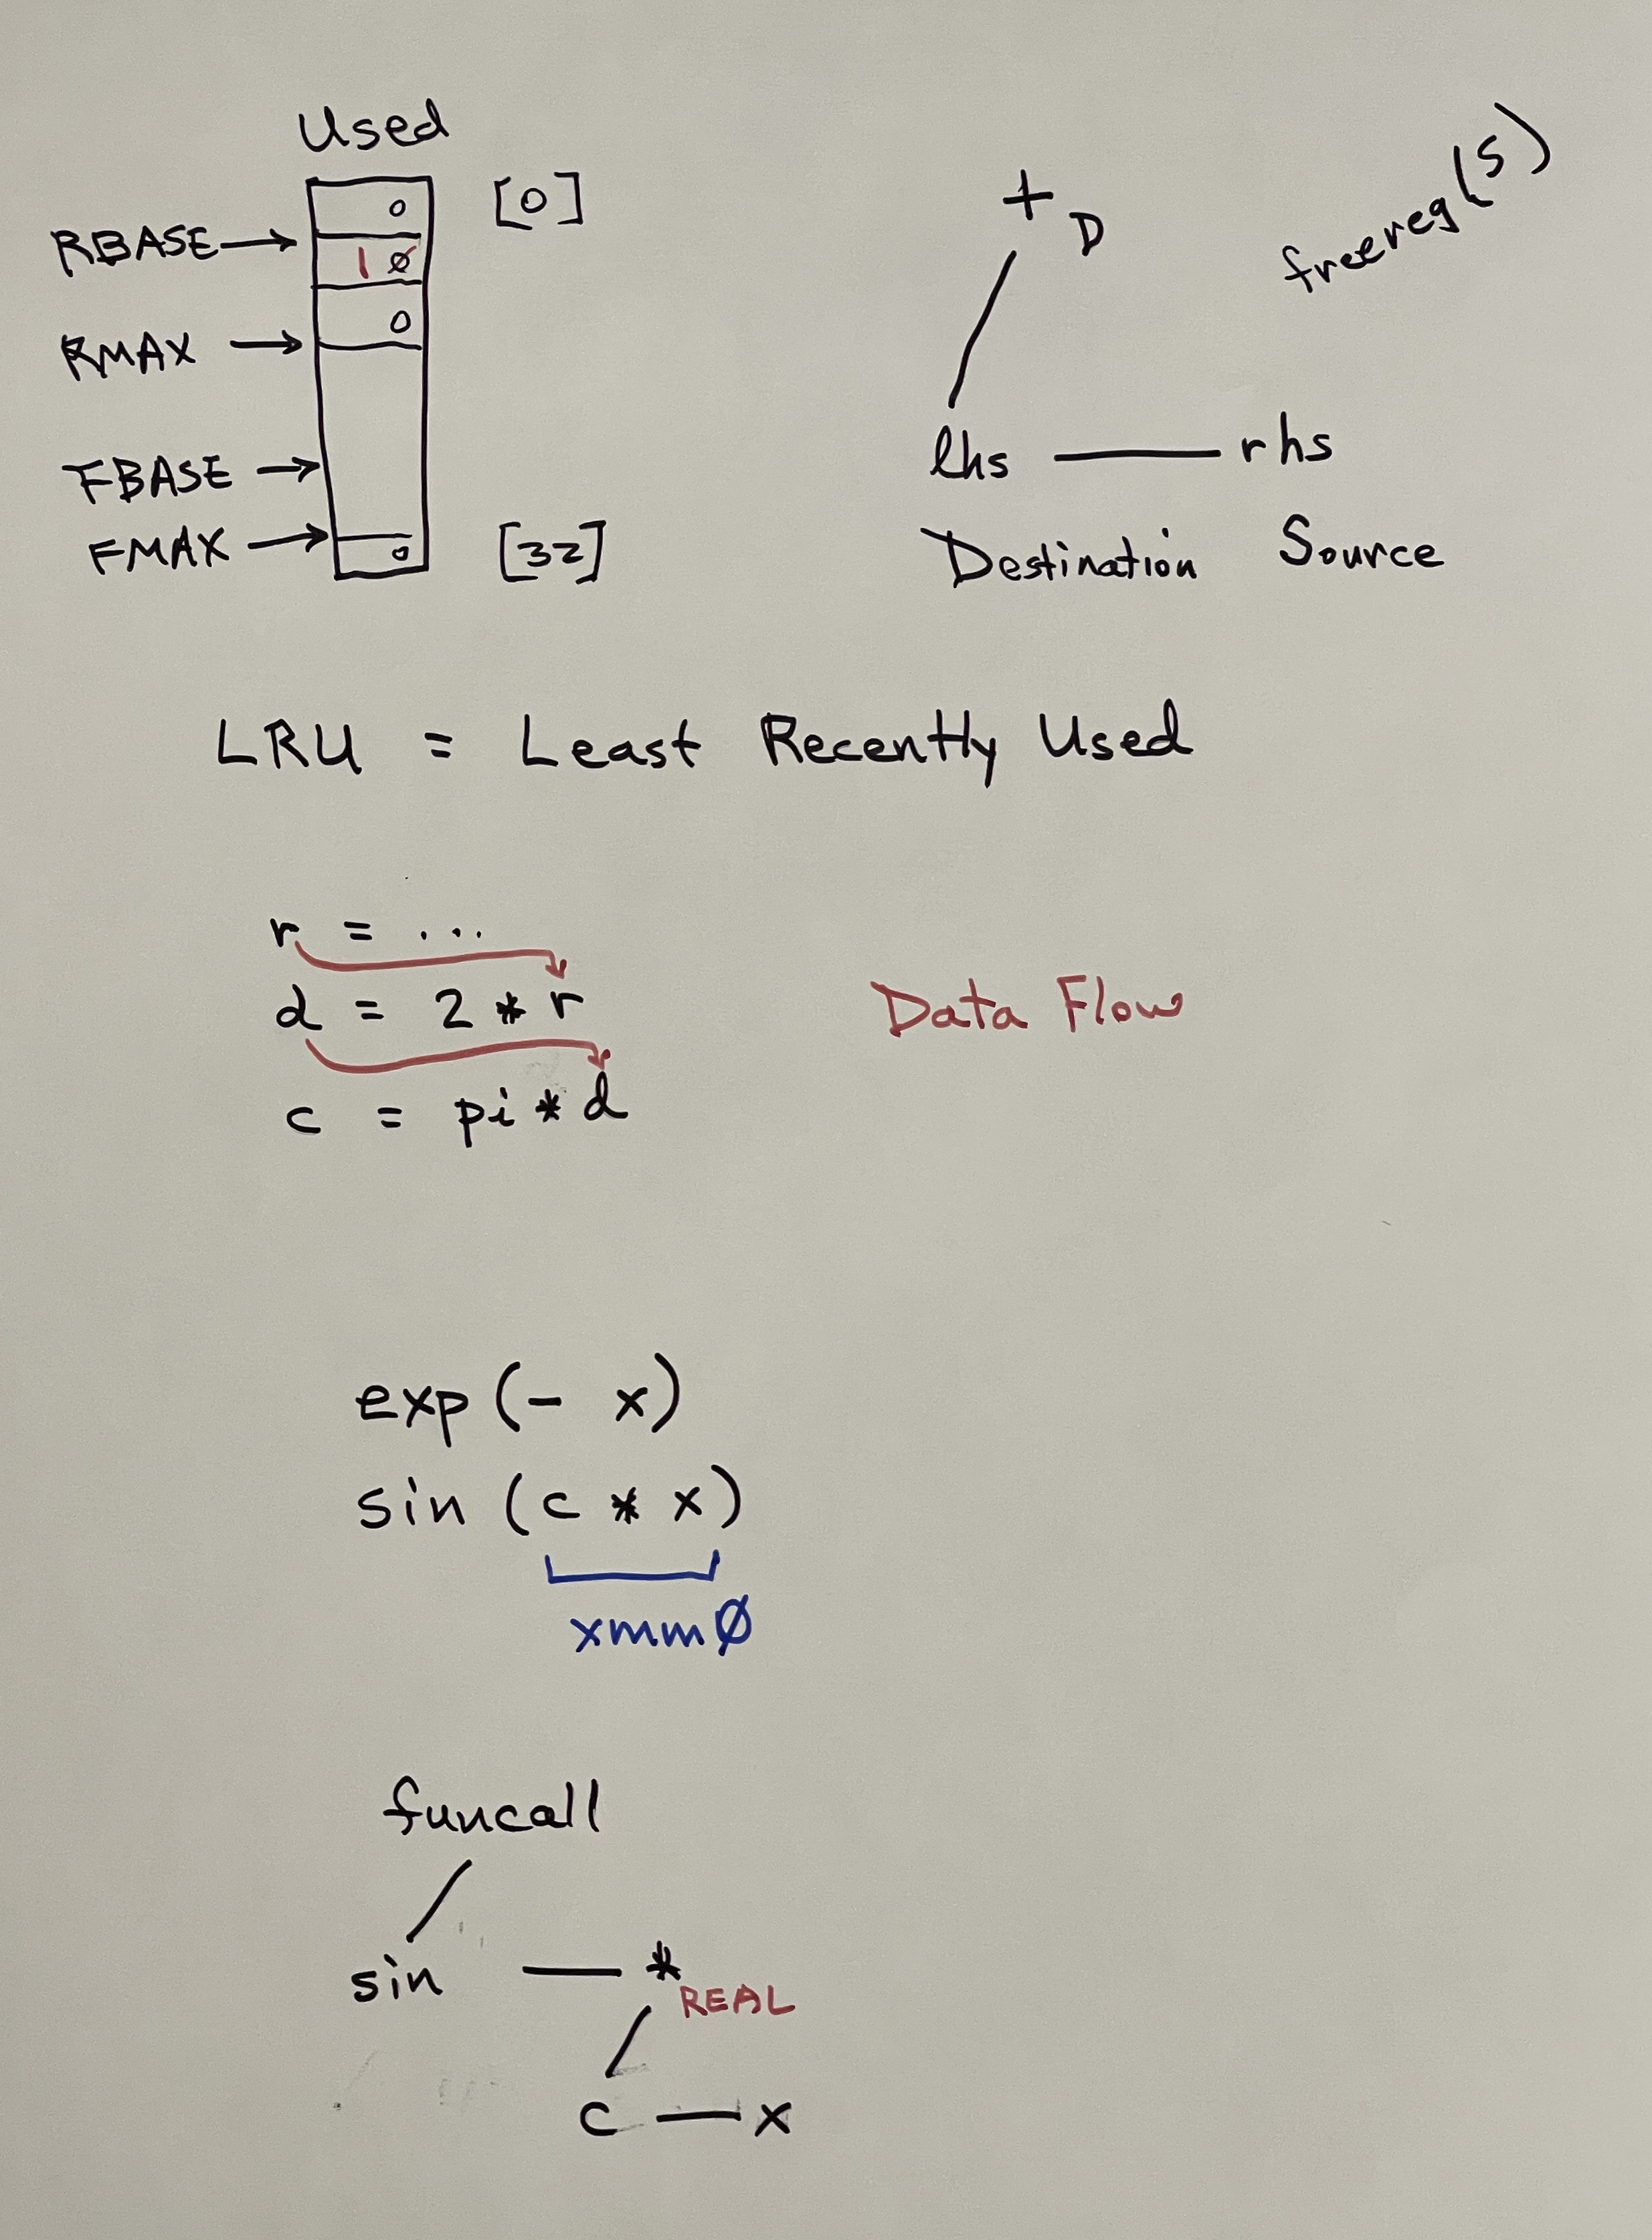 Used
0 [0]
RBASE → 1 0
0
RMAX →
FBASE →
FMAX → 0 [32]
+ D
freereg(s)
lhs — rhs
Destination Source
LRU = Least Recently Used
r = ...
d = 2 * r
Data Flow
c = pi * d
exp (- x)
sin (c * x)
xmm0
funcall
sin — *
REAL
c — x